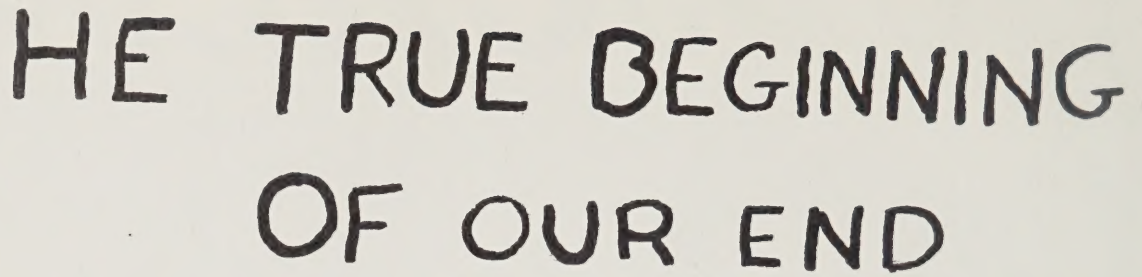 HE TRUE BEGINNING
OF OUR END